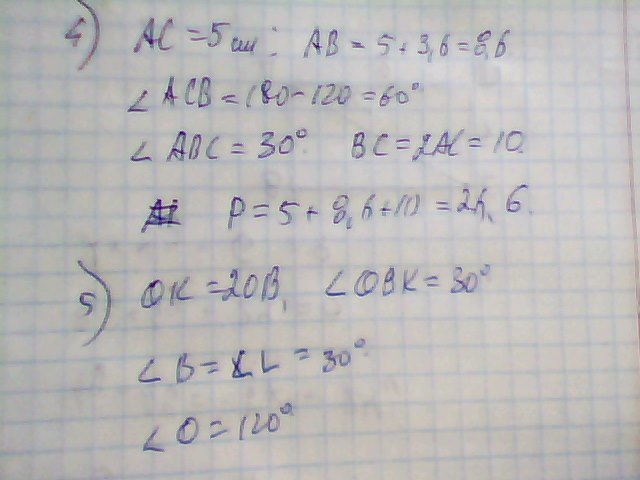 4) AC = 5 см; AB = 5 + 3,6 = 8,6
∠ ACB = 180 - 120 = 60°
∠ ABC = 30° BC = 2AC = 10.
P = 5 + 8,6 + 10 = 24,6.
5) OK = 2OB, ∠ OBK = 30°
∠ B = ∠ L = 30°
∠ O = 120°